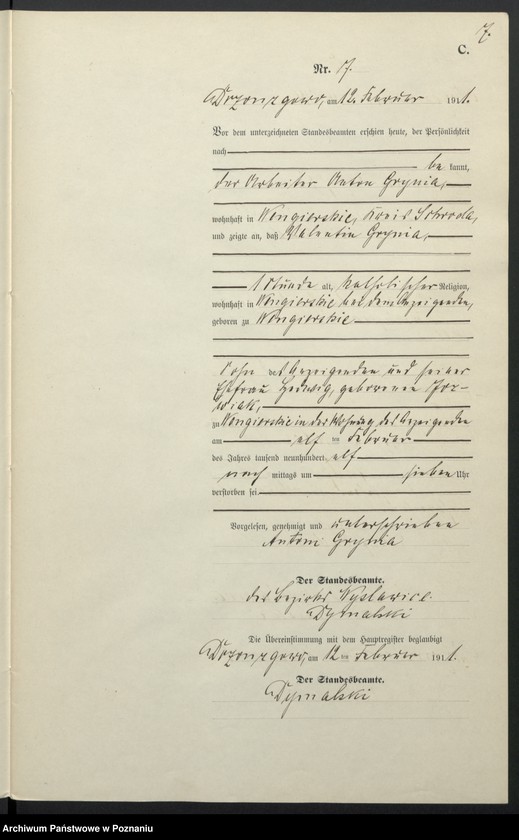 7.
C.
Nr. 7.
am 12. Februar 1911.
Vor dem unterzeichneten Standesbeamten erschien heute, der Persönlichkeit
nach
be kannt,
der Arbeiter Anton Grynia,
wohnhaft in Wengierskie, Kreis Schroda,
und zeigte an, daß Valentin Grynia,
1 Stunde alt, katholischer Religion,
wohnhaft in Wengierskie bei dem Anzeigenden,
geboren zu Wengierskie
Sohn des Anzeigenden und seiner
Ehefrau Hedwig, geborenen
zu Wengierskie in der Wohnung des Anzeigenden
am elf ten Februar
des Jahres tausend neunhundert elf
nach mittags um sieben Uhr
verstorben sei.
Vorgelesen, genehmigt und unterschrieben
Antoni Grynia
Der Standesbeamte.
des Bezirks
Dymalski
Die Übereinstimmung mit dem Hauptregister beglaubigt
am 12 ten Februar 1911.
Der Standesbeamte.
Dymalski
Archiwum Państwowe w Poznaniu